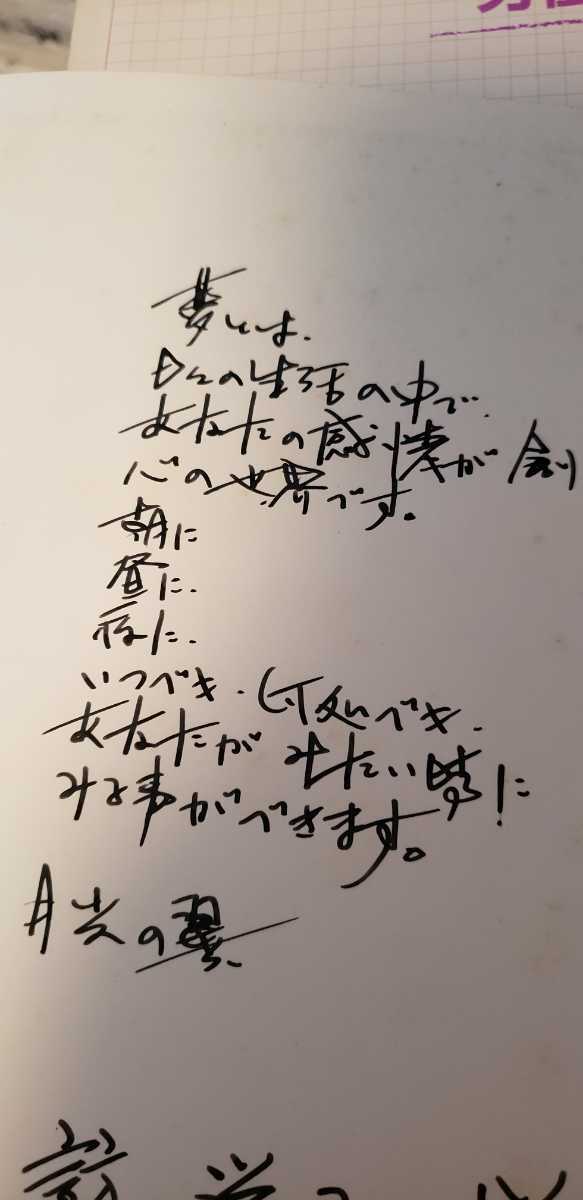 夢とは、
日々の生活の中で、
あなたの感情が創
心の世界です。
朝に
昼に、
夜に、
いつでも、何処でも、
あなたがみたい時に
みる事ができます。
月光の翼